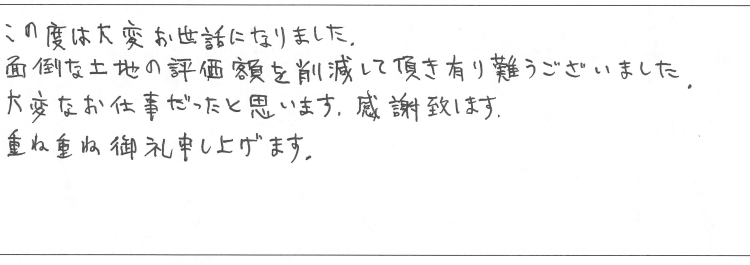 この度は大変お世話になりました.
面倒な土地の評価額を削減して頂き有り難うございました.
大変なお仕事だったと思います. 感謝致します.
重ね重ね御礼申し上げます.